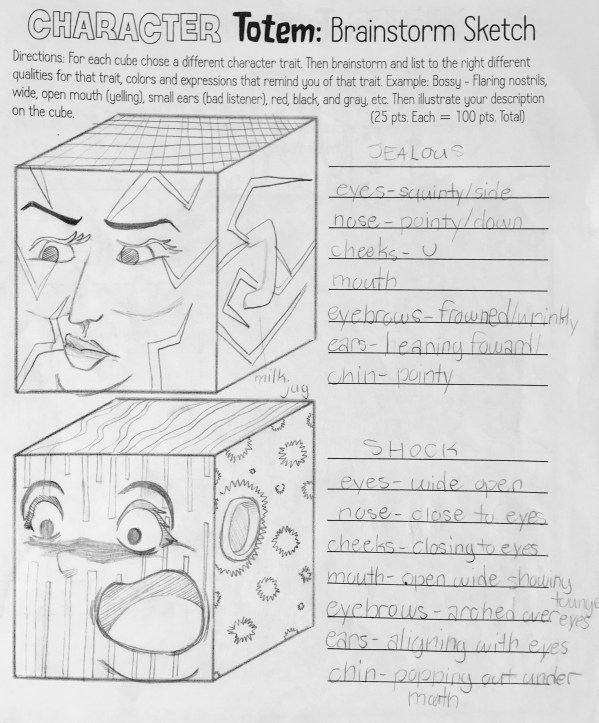 CHARACTER Totem: Brainstorm Sketch
Directions: For each cube chose a different character trait. Then brainstorm and list to the right different
qualities for that trait, colors and expressions that remind you of that trait. Example: Bossy - Flaring nostrils,
wide, open mouth (yelling), small ears (bad listener), red, black, and gray, etc. Then illustrate your description
on the cube. (25 pts. Each = 100 pts. Total)
JEALOUS
eyes-squinty/side
nose - pointy/down
cheeks- U
mouth
eyebrows-frowned/wrinkly
ears- leaning foward/
chin- pointy
milk
jug
SHOCK
eyes- wide open
nose- close to eyes
cheeks- closing to eyes
mouth- open wide showing
tounge
eyebrows - arched over eyes
ears- aligning with eyes
chin- popping out under
mouth